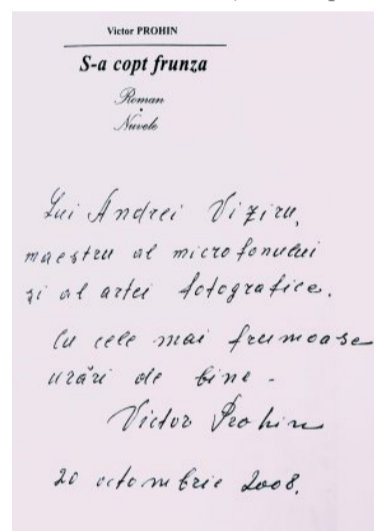 Victor PROHIN
S-a copt frunza
Roman
•
Nuvele
Lui Andrei Viziru,
maestru al microfonului
și al artei fotografice.
Cu cele mai frumoase
urări de bine -
Victor Prohin
20 octombrie 2008.